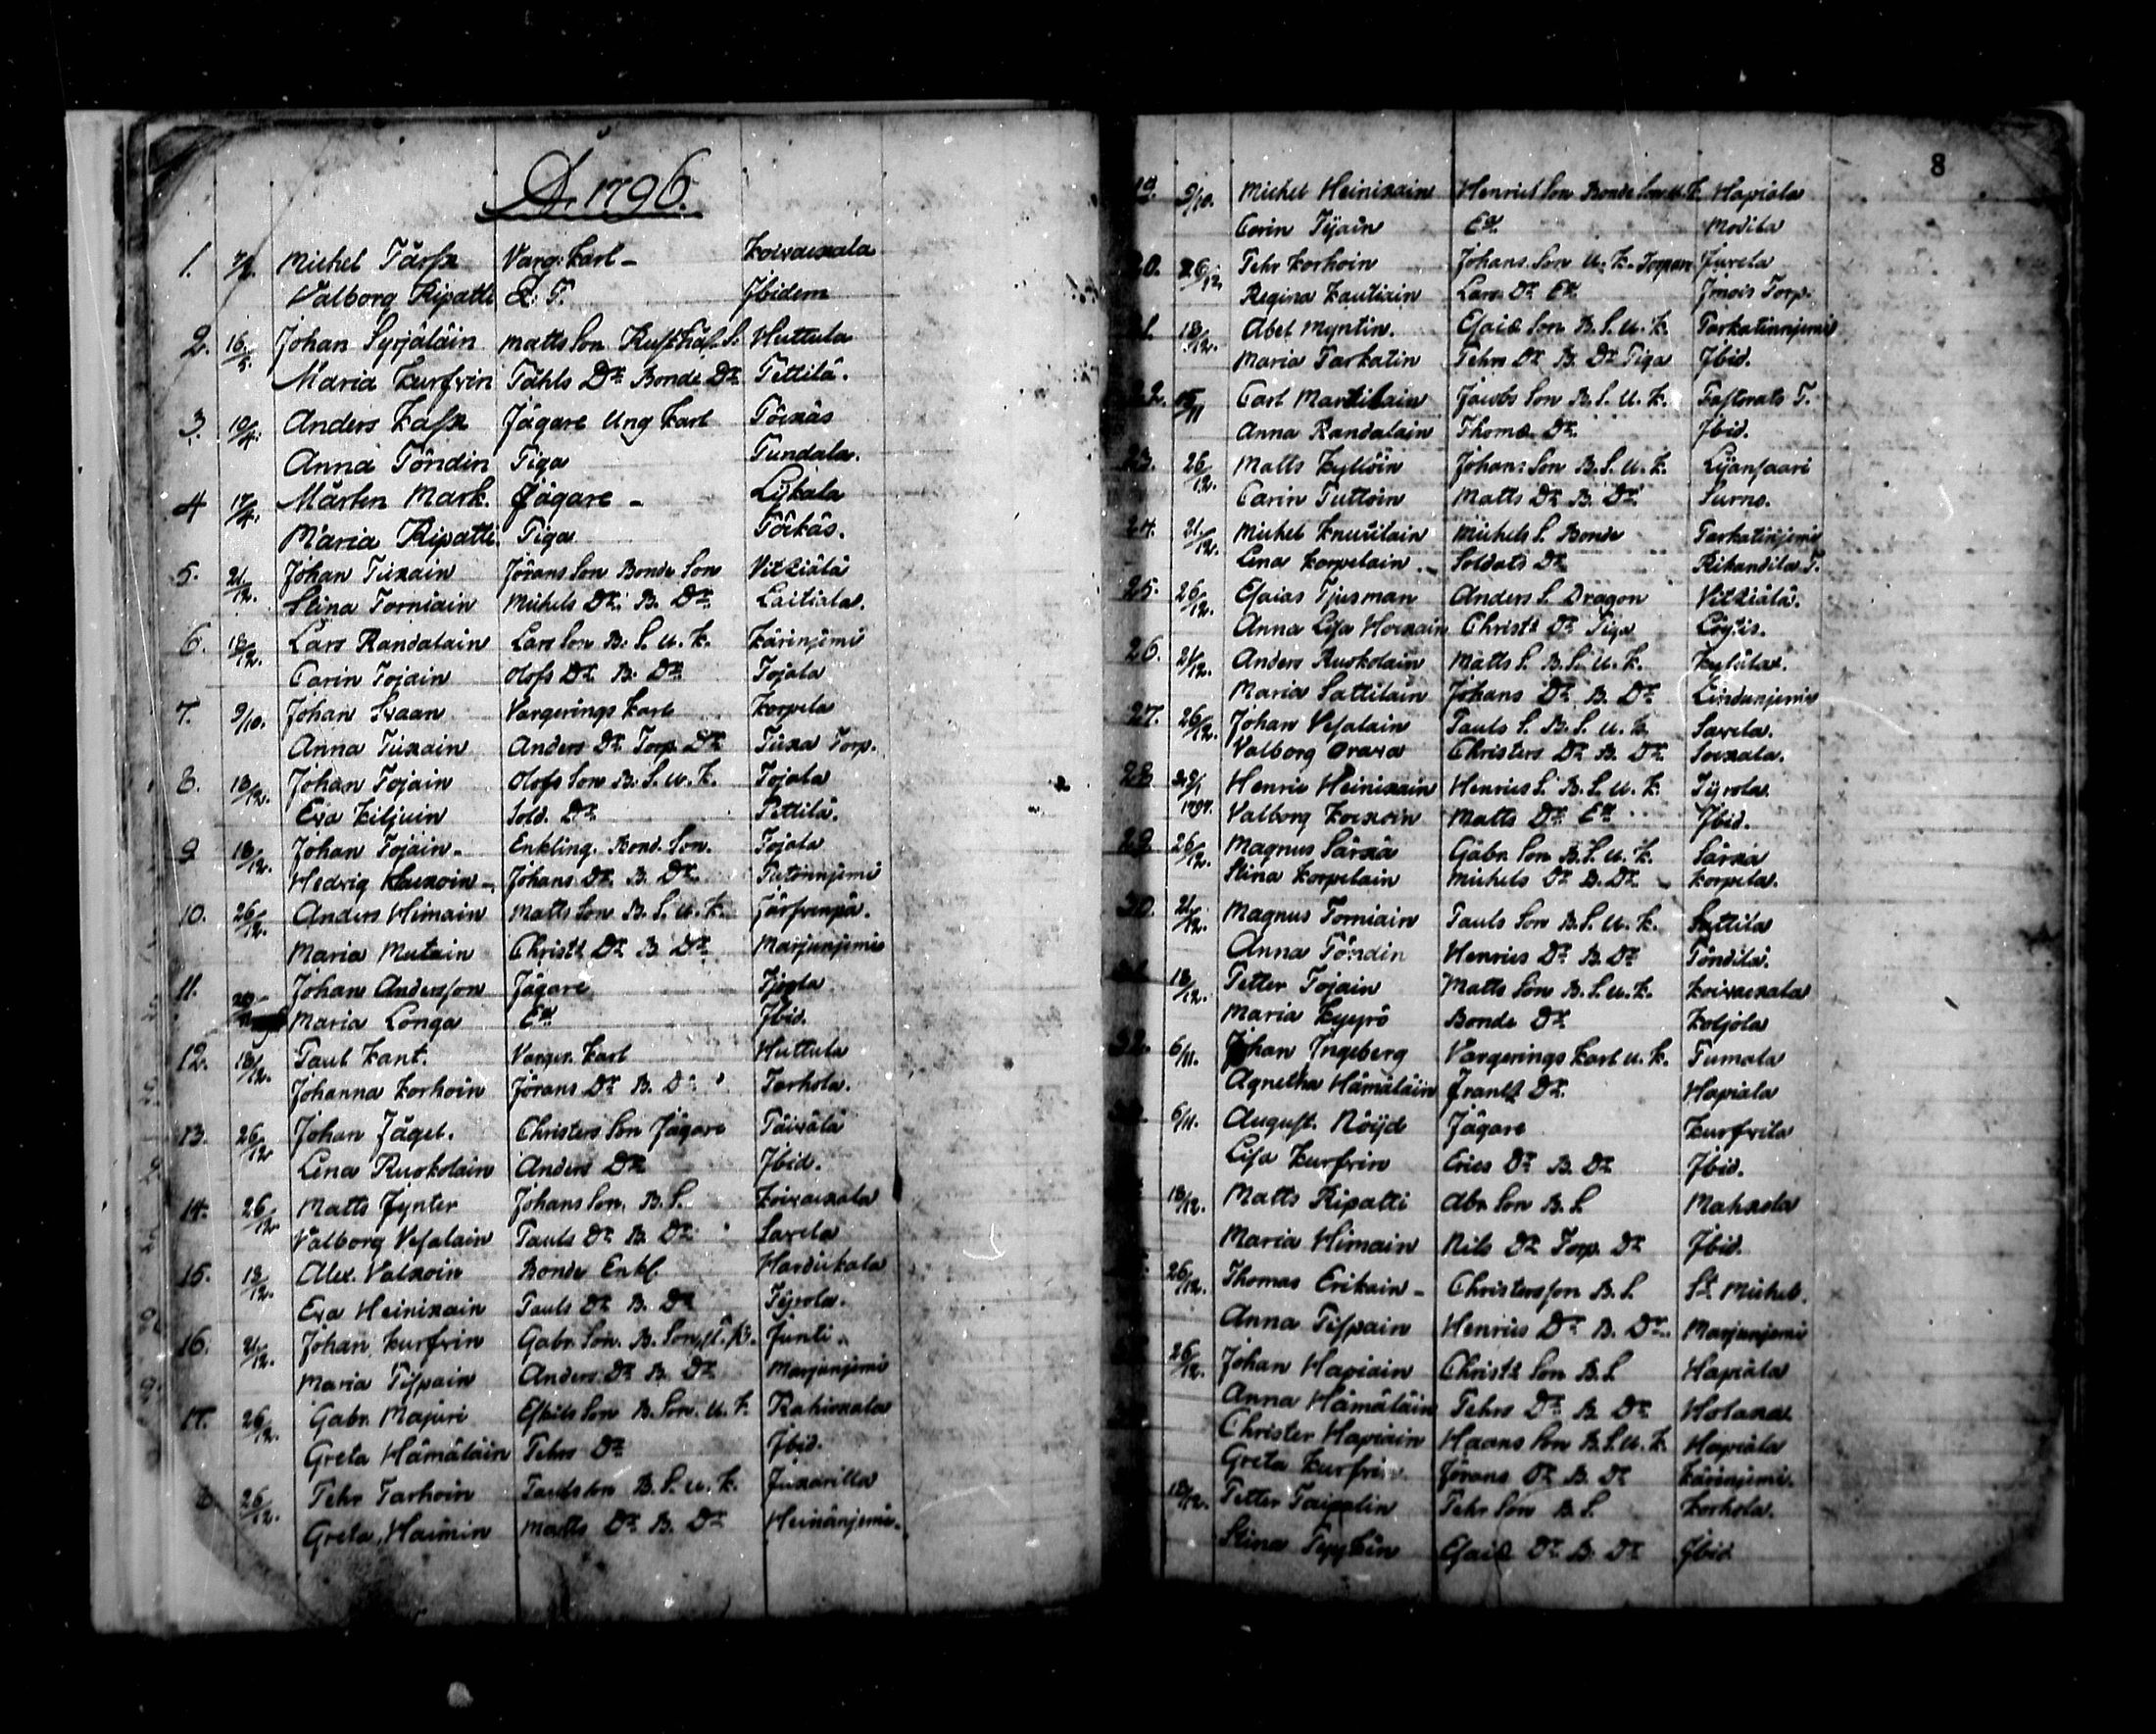 A. 1796.
1. Michel Tårsk Varg: Karl – Koivaxala
Valborg Ripatti E. P. Ibidem
2. 16/5. Johan Syrjäläin Matts Son Rusthål. S. Huttula
Maria Kurfvin Påhls Dr Bonde Dr Pettilä.
3. 10/4. Anders Kask Jägare Ung Karl Pöixäs
Anna Pöndin Piga Pundala.
4 17/4. Mårten Mark. Jägare – Lykala
Maria Ripatti. Piga Pöikäs.
5. 21/12. Johan Tuxain Jörans Son Bonde Son Vitsiälä
Stina Torniain Michels Dr. B. Dr. Laitiala.
6. 18/12. Lars Randalain Lars Son B. S. u. K. Kärinjemi
Carin Pojain Olofs Dr B. Dr Pojala
7. 9/10. Johan Svaan Vargerings Karl Korpela
Anna Tuxain Anders Dr Torp. Dr Tuxa Torp.
8. 18/12. Johan Pojain Olofs Son B. S. u. K. Pojala
Eva Kiljuin Sold. Dr Pettilä.
9 18/12. Johan Pojain. Enkling. Bond. Son. Pojala
Hedvig Kauxoin – Johans Dr. B. Dr. Putonnjemi
10. 26/12. Anders Himain Matts Son B. S. u. K. Järfvenpä.
Maria Mutain Christs Dr B. Dr. Marjunjemi
11. Johan Andersson Jägare
Maria Longa Er Ibid.
12. 18/12. Paul Kant. Varger. Karl Huttula
Johanna Korhoin Jörans Dr B. Dr Parhola.
13. 26/12 Johan Jäger. Christers Son Jägare Päiväla
Lena Ruokolain Anders Dr Ibid.
14. 26/12 Matts Jynter Johans Son. B. S. Koivaxala
Valborg Vesalain Pauls Dr B. Dr Savela
15. 18/12. Alex. Valxoin Bonde Enkl. Hardickala
Eva Heinixain Pauls Dr B. Dr Pyrola.
16. 21/12. Johan Kurfvin Gabr. Son. B. Son. u. K. Junti.
Maria Pispain Anders Dr B. Dr Marjunjemi
17. 26/12. Gabr. Majuri Eskils Son B. Son. u. K. Rahixala
Greta Hämäläin Pehrs Dr Ibid.
26/12. Pehr Parhoin Pauls Son B. S. u. K. Juxarilla
Greta Haimin Matts Dr B. Dr Heinänjemi.
8
19. 9/10. Michel Heinixain Henrics Son Bonde Son u. K. Hapiala
Carin Tyjain Er Modila
20. 26/12. Pehr Korhoin Johans Son u. K. Torpare Jurela
Regina Kautiain Lars Dr Er Imois Torp.
18/12. Abel Myntin. Esaias Son B. S. u. K. Parkatinnjemi
Maria Parkatin Pehrs Dr B. Dr Piga Ibid.
22. Carl Martikain Jacobs Son B. S. u. K. Pastorats T.
Anna Randalain Thomæ Dr. Ibid.
23. 26/12. Matts Kyllöin Johans Son B. S. u. K. Lijansaari
Carin Tuttoin Matts Dr B. Dr Surno.
24. 21/12. Michel Knuutain Michels S. Bonde Parkatinjemi
Lena Korpelain. – Soldats Dr Rikandila T.
25. 26/12. Esaias Tjusman Anders S. Dragon Vitsiälä.
Anna Lisa Hoixain Christs Dr Piga
26. 21/12. Anders Ruokolain Matts S. B. S. u. K. Kylälax.
Maria Sattilain Johans Dr B. Dr Lindunjemi
27. 26/12. Johan Vesalain Pauls S. B. S. u. K. Savela.
Valborg Orava Christers Dr B. Dr Soixala.
28 1797. Henric Heinixain Henrics S. B. S. u. K. Pyrola
Valborg Koixoin Matts Dr Er Ibid.
29 26/12. Magnus Särxä Gabr. Son B. S. u. K. Särxä
Stina Korpelain Michels Dr B. Dr Korpela.
30. 21/12. Magnus Torniain Pauls Son B. S. u. K. Sattila
Anna Pöndin Henrics Dr B. Dr Pöndilä.
18/12. Petter Pojain Matts Son B. S. u. K. Koivaxala
Maria Kyyrö Bonde Dr Koljola
32. 6/11. Johan Ingeberg Vargerings Karl u. K. Tumala
Agnetha Hämäläin Frants Dr. Hapiala
6/11. August. Nöyd Jägare Kurfvila
Lisa Kurfvin Erics Dr B. Dr Ibid.
18/12. Matts Ripatti Abr. Son B. S Mahxola
Maria Himain Nils Dr Torp. Dr Ibid.
26/12. Thomas Erikain – Christersson B. S St. Michel.
Anna Pispain Henrics Dr B. Dr. Marjunjemi
26/12. Johan Hapiain Christs Son B. S Hapiala
Anna Hämäläin Pehrs Dr B. Dr Holaxa
Christer Hapiain Haans Son B. S. u. K. Hapiala
Greta Kurfvin Jörans Dr B. Dr Kärinjemi.
18/12. Petter Taipalin Pehr Son B. S. Korhola.
Stina Esaiæ Dr B. Dr Ibid